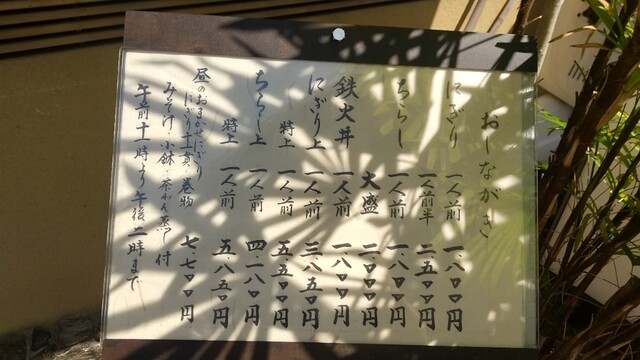 おしながき
にぎり 一人前 一.八〇〇円
一人前半 二.五〇〇円
ちらし 一人前 一.八〇〇円
大盛 二.〇〇〇円
鉄火丼 一人前 一.八〇〇円
にぎり上 一人前 三.八五〇円
特上 一人前 五.五〇〇円
ちらし上 一人前 四.一八〇円
特上 一人前 五.八五〇円
昼のおまかせにぎり
にぎり十貫・巻物 七.七〇〇円
みそ汁・小鉢・茶わん蒸し付
午前十一時より午後二時まで